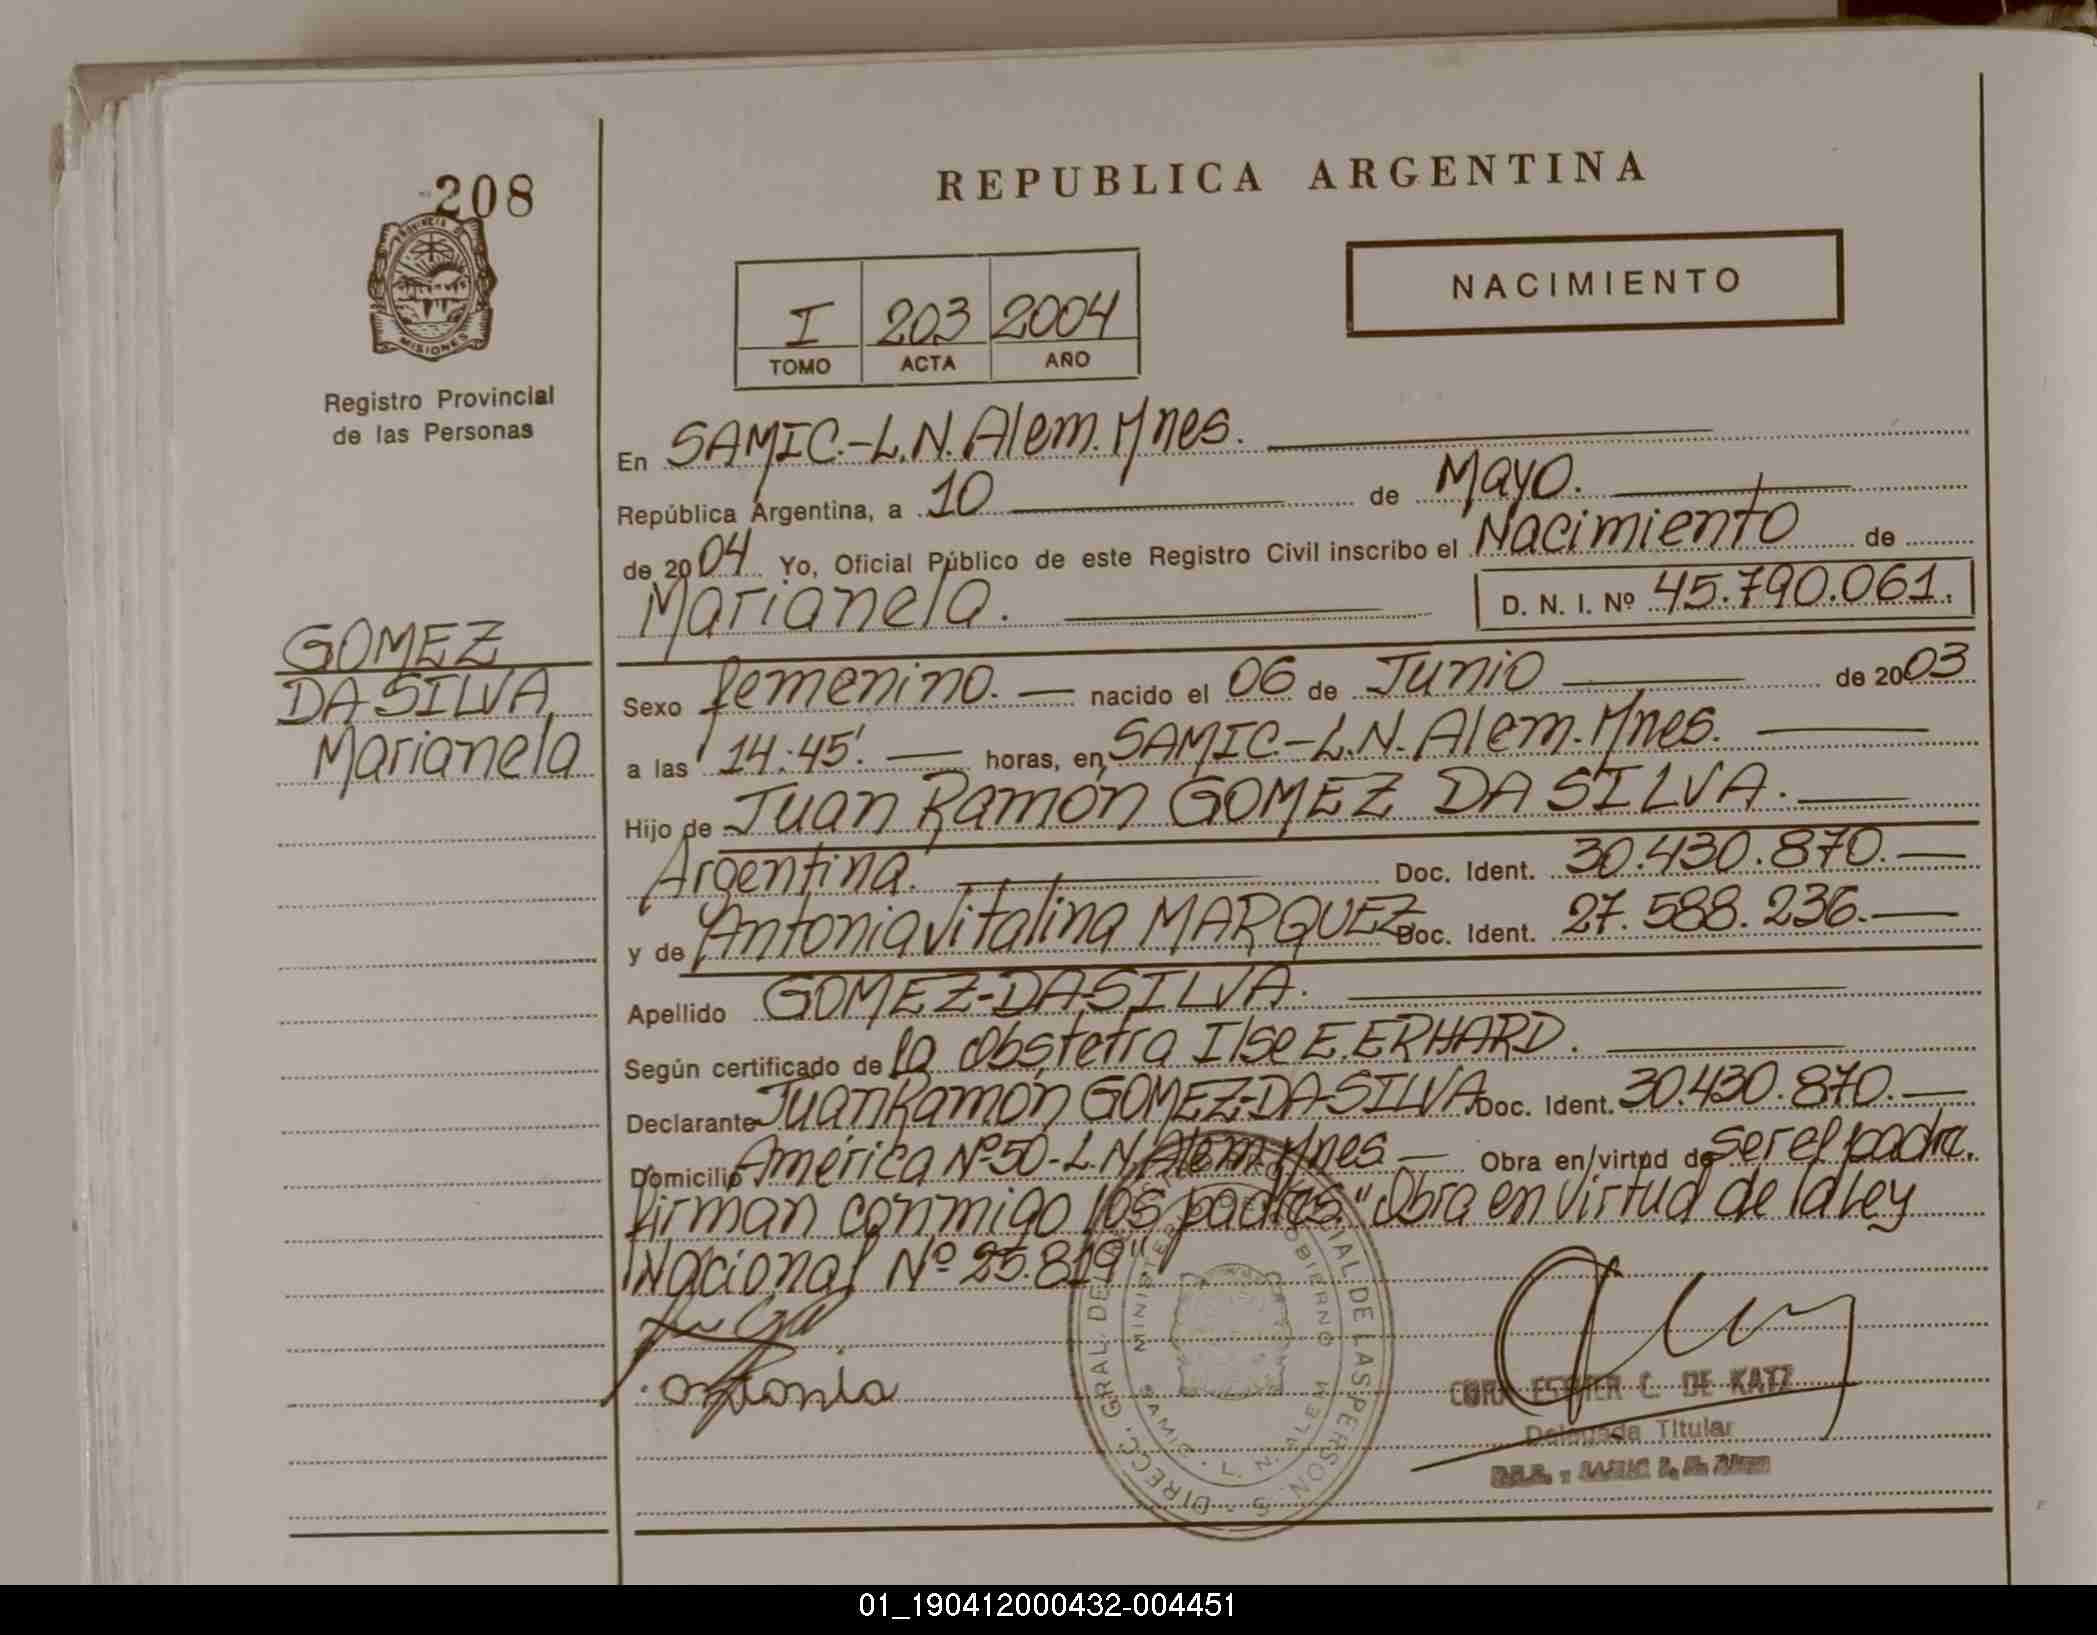 208
PROVINCIA DE
MISIONES
Registro Provincial
de las Personas
GOMEZ
DA SILVA
Marianela
REPUBLICA ARGENTINA
NACIMIENTO
I 203 2004
TOMO ACTA AÑO
En SAMIC.-L.N.Alem.Mnes.
República Argentina, a 10 de Mayo.
de 2004 Yo, Oficial Público de este Registro Civil inscribo el Nacimiento de
Marianela. D. N. I. Nº 45.790.061.
Sexo femenino. nacido el 06 de Junio de 2003
a las 14:45'. horas, en SAMIC-L.N.Alem.Mnes.
Hijo de Juan Ramón GOMEZ DA SILVA.
Argentina. Doc. Ident. 30.430.870.
y de Antonia Vitalina MARQUEZ Doc. Ident. 27.588.236.
Apellido GOMEZ-DA-SILVA.
Según certificado de la Obstetra Ilse E. ERHARD.
Declarante Juan Ramón GOMEZ-DA-SILVA Doc. Ident. 30.430.870.
Domicilio América Nº50-L.N.Alem.Mnes. Obra en/virtud de ser el padre.
Firman conmigo los padres. "Obra en virtud de la Ley
Nacional Nº 25.819"
antonia
DIRECC. GRAL. DEL DE LAS PERSONAS
MINISTERIO GOBIERNO
SAMIC - L. N. ALEM
ESTHER C. DE KATZ
Delegada Titular
01_190412000432-004451